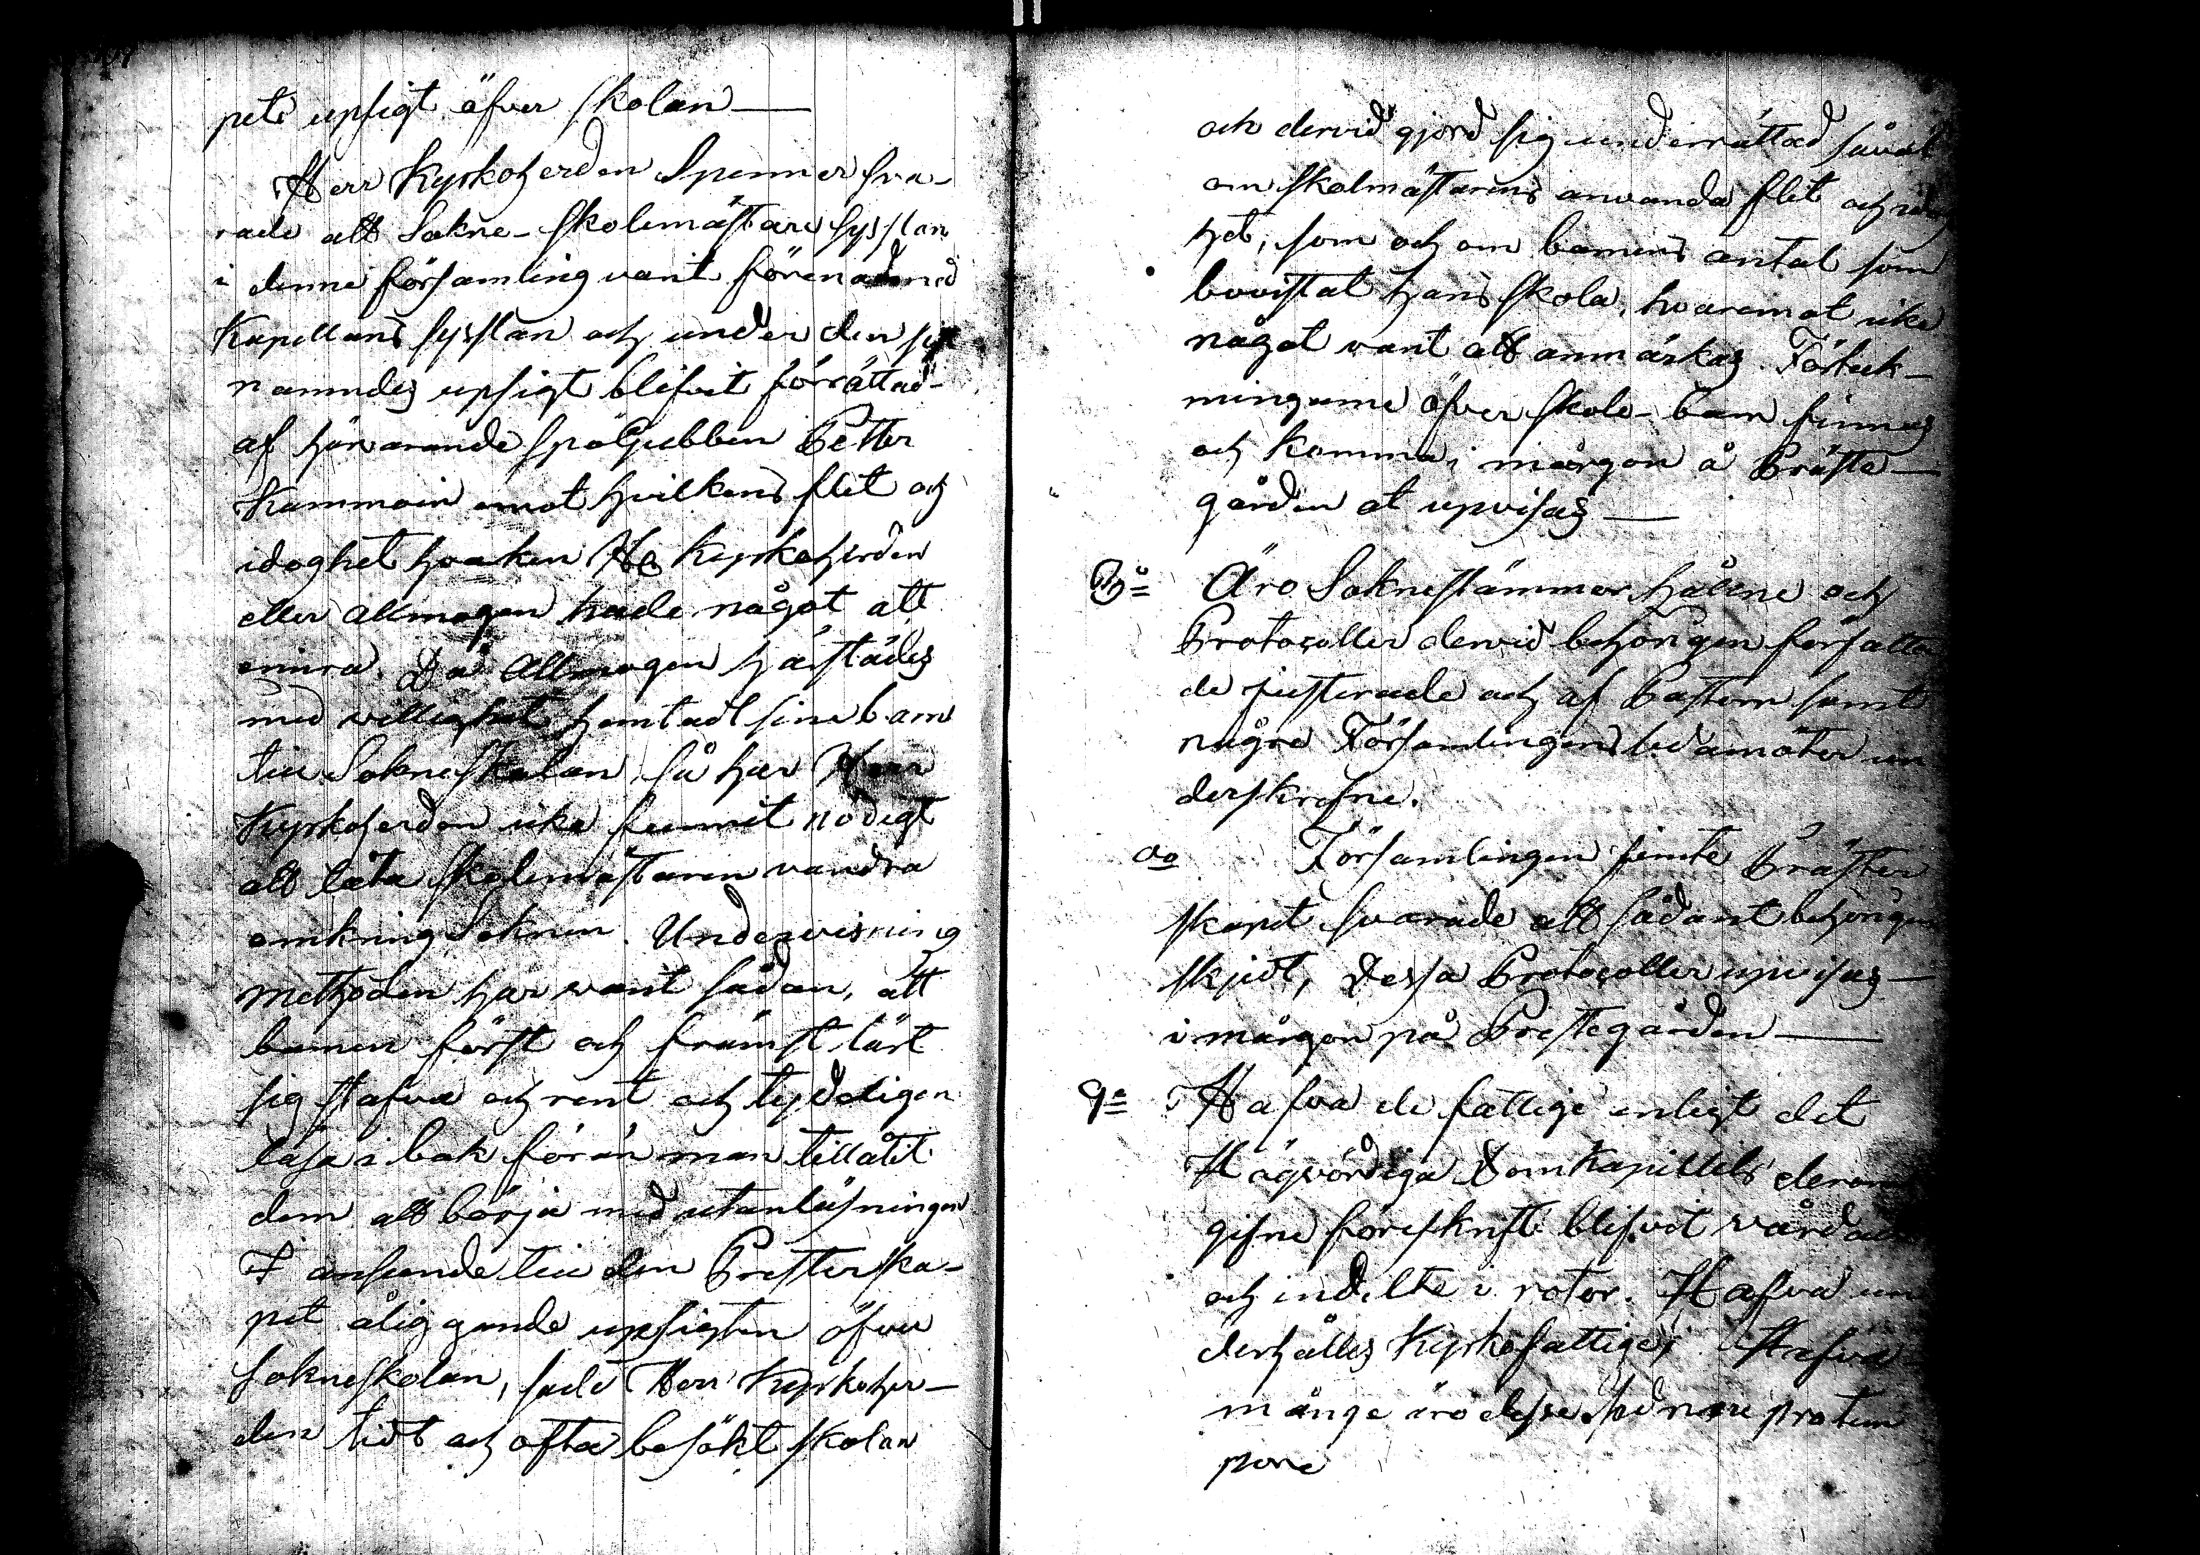 pets upsigt öfver skolan —
Herr Kyrkoherden Spenner sva-
rade att Sokne-Skolemästare sysslan
i denne församling varit förenad med
Kapellans sysslan och under den
namndes upsigt blifvit förrättad
af härvarande spögubben Petter
Kammoin emot hvilkens flit och
idoghet hvarken Hr Kyrkoherden
eller Allmogen hade något att
einra. Då Allmogen härstädes
med willighet hemtadt sine barn
till Sokneskolan så har Herr
Kyrkoherden icke funnit nödigt
att låta Skolemästaren vandra
omkring Soknen. Undervisning
methoden har varit sådan, att
barnen först och främst lärt
sig stafva och rent och tydeligen
läsa i bok förän man tillåtit
dem att börja med utanläsningen
I anseende till den Presterska-
pet åliggande upsigten öfver
sokneskolan, sade Herr Kyrkoher-
den tidt och ofta besökt skolan
och dervid gjord sig underrättad såväl
om skolmästarens använda flit och
het, som och om barnens antal som
bevistat hans skola, hvaremot icke
något varit att anmärkas. Förtek-
ningarne öfver skole-barn finnas
och komma i mårgon å Präste-
gården at upvisas —
8:o Äro Soknestämmor hållne och
Protocoller dervid behörigen författa
de justerade och af Pastorn samt
någre Församlingens ledamöter un
derskrefne.
Församlingen jemte Präster
skapet svarade att sådant behörigen
skjedt, Dessa Protocoller upvisas
i mårgon på Prestegården —
9:o Hafva de fattige enligt det
Högvördiga Domkapitlets derom
gifne föreskrift blifvit vårdade
och indelte i rotor. Hafva un
derhålles Kyrkofattige,
månge äro desse pro tem
pore